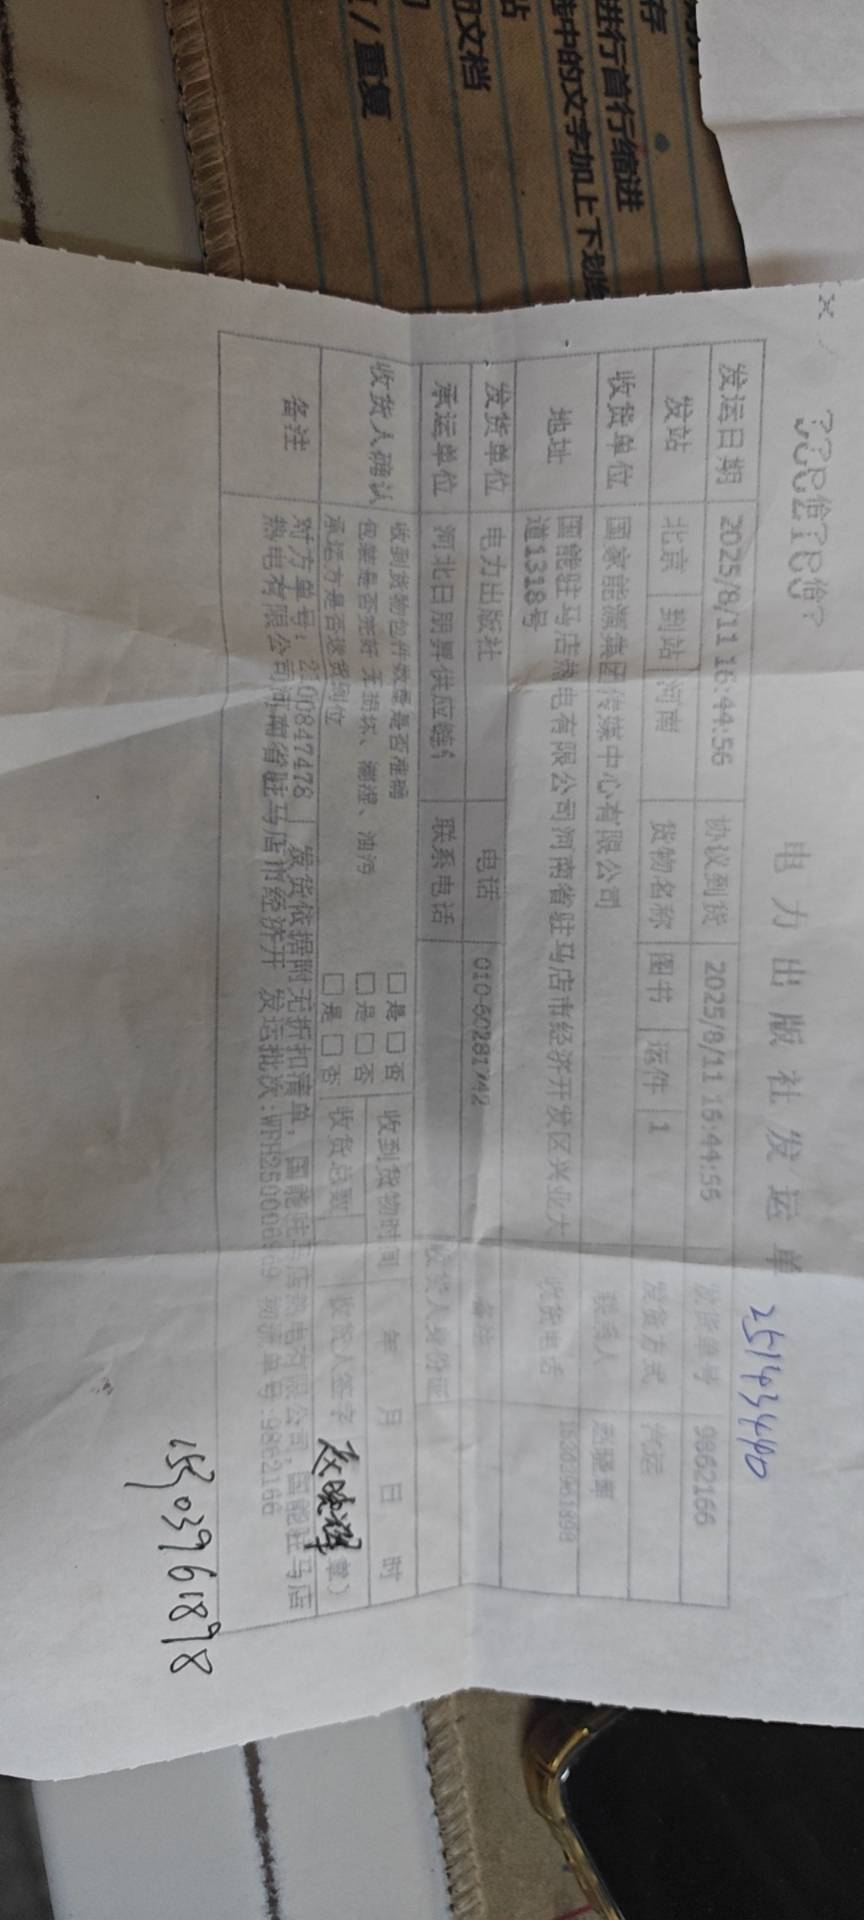 存
进行首行缩进
中的文字加上下划
的文档
站
/ 重复
电力出版社发运单
25143440
发运日期 2025/8/11 15:44:56 协议到货 2025/8/11 15:44:55 发货单号 9862166
发站 北京 到站 河南 货物名称 图书 运件 1 发货方式 汽运
收货单位 国家能源集团传媒中心有限公司 联系人
地址 国能驻马店热电有限公司河南省驻马店市经济开发区兴业大道1318号 收货电话
发货单位 电力出版社 电话 010-60281742 备注
承运单位 河北日朋昇供应链 联系电话 收货人身份证
收货人确认 收到货物包件数量是否准确 □是 □否 收到货物时间 年 月 日 时
包装是否完好 无损坏、潮湿、油污 □是 □否
承运方是否送货到位 □是 □否 收货总数 收货人签字 (章)
备注 对方单号:2500847478 发货依据附无折扣清单,国能驻马店热电有限公司,国能驻马店
热电有限公司河南省驻马店市经济开 发运批次: 物流单号:9862166
15303961898